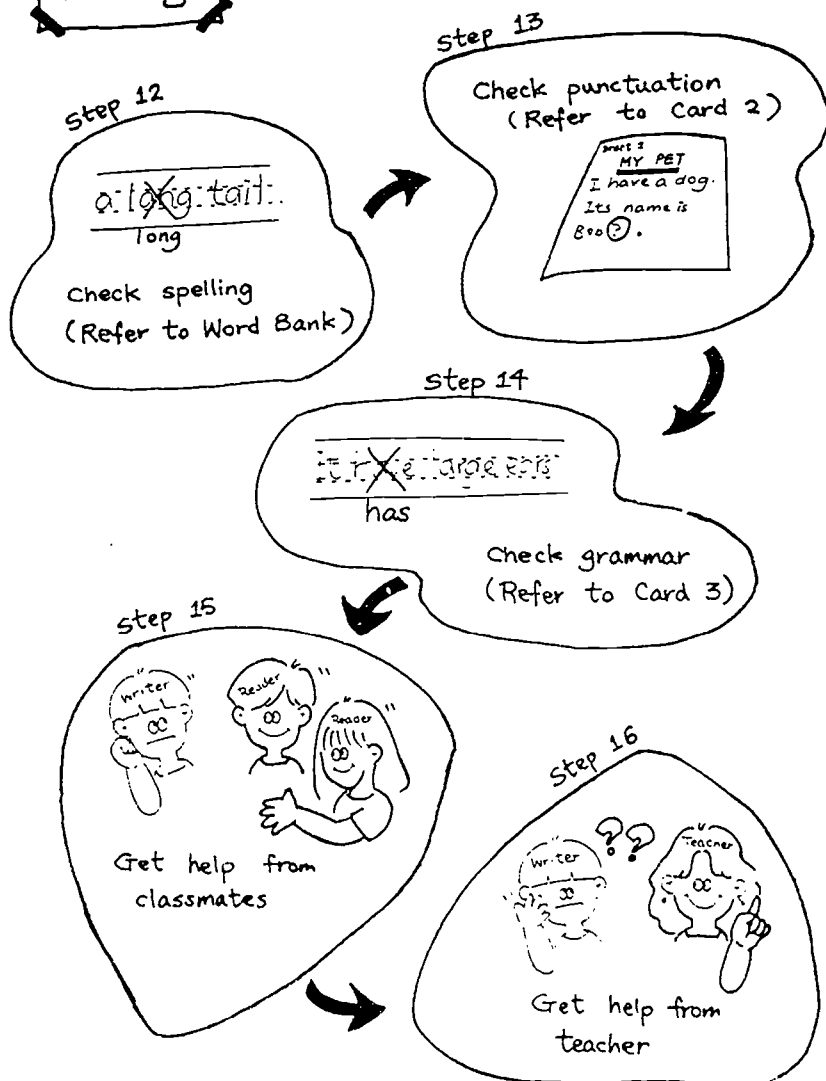 Step 12
a long tail.
long
Check spelling
(Refer to Word Bank)
Step 13
Check punctuation
(Refer to Card 2)
Draft 1
MY PET
I have a dog.
Its name is
Boo ? .
Step 14
large ears
has
Check grammar
(Refer to Card 3)
Step 15
Writer
Reader
Reader
Get help from
classmates
Step 16
Writer
??
Teacher
Get help from
teacher